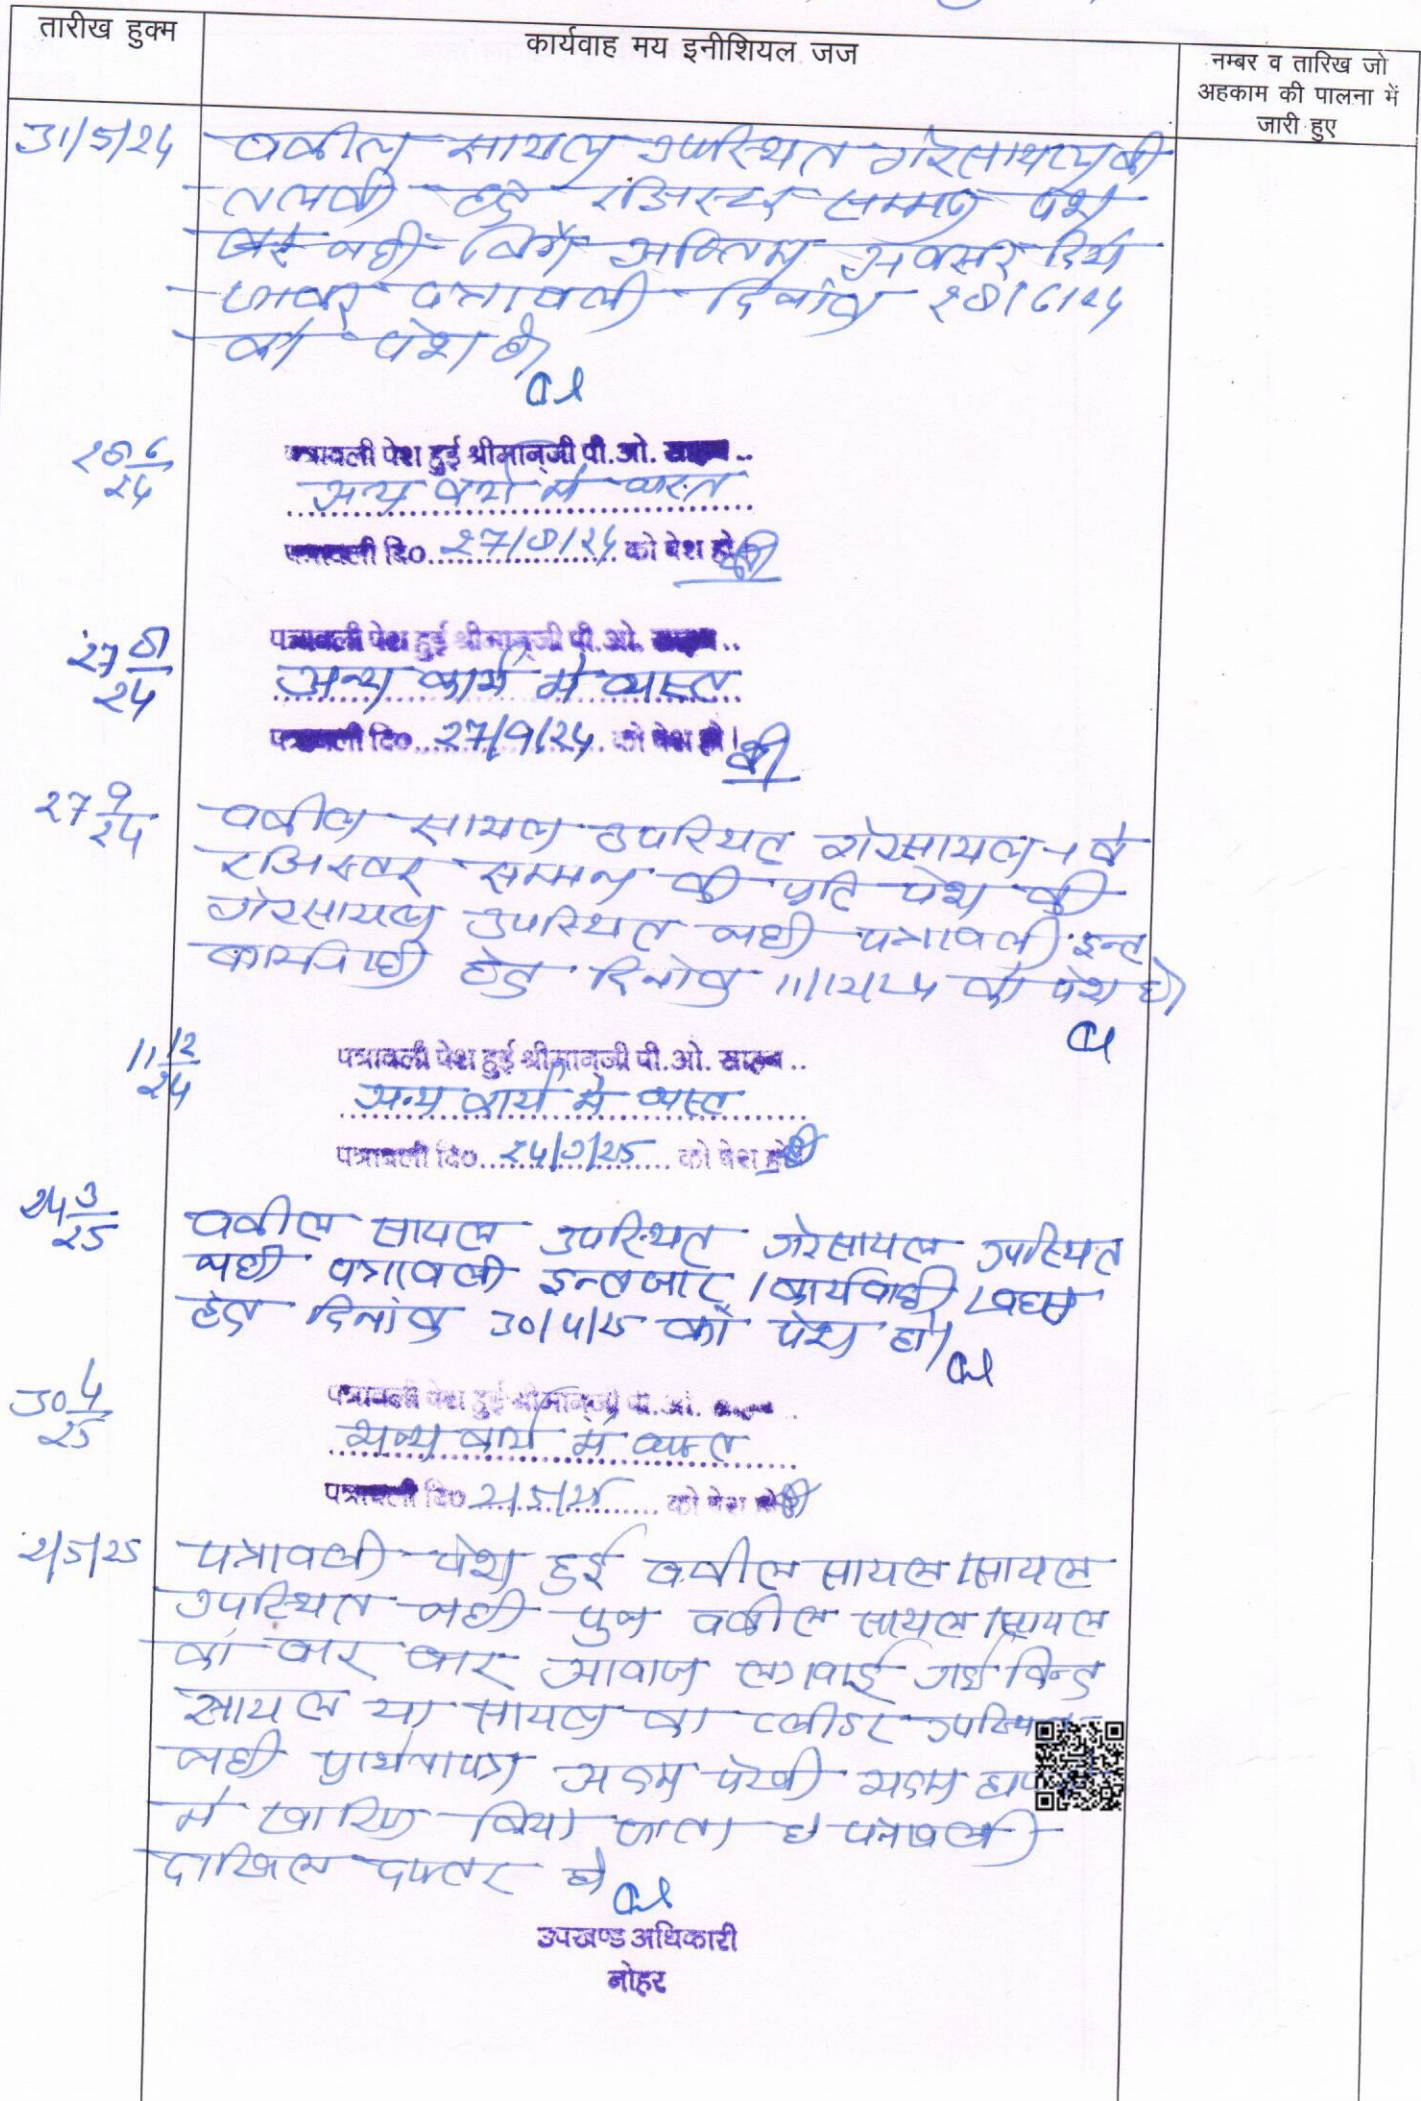 तारीख हुक्म
कार्यवाह मय इनीशियल जज
नम्बर व तारिख जो
अहकाम की पालना में
जारी हुए
31/5/24
वकील सायल उपस्थित गैरसायल की
तलबी हेतु रजिस्टर सम्मन पेश
नही किये अन्तिम अवसर दिया
जाकर पत्रावली दिनांक 28/6/24
को पेश हो
28 6/24
पत्रावली पेश हुई श्रीमान्‌जी पी.ओ. साहब..
अन्य कार्य में व्यस्त
पत्रावली दि०..27/8/24 को पेश हो
27 8/24
पत्रावली पेश हुई श्रीमान्‌जी पी.ओ. साहब..
अन्य कार्य में व्यस्त
पत्रावली दि०..27/9/24.. को पेश हो।
27 9/24
वकील सायल उपस्थित गैरसायल के
रजिस्टर सम्मन की प्रति पेश की
गैरसायल उपस्थित नही पत्रावली इन्त
कार्यवाही हेतु दिनांक 11/12/24 को पेश हो
11 12/24
पत्रावली पेश हुई श्रीमान्‌जी पी.ओ. साहब..
अन्य कार्य में व्यस्त
पत्रावली दि०..24/3/25.. को पेश हो
24 3/25
वकील सायल उपस्थित गैरसायल उपस्थित
नही पत्रावली इन्तजार/कार्यवाही/बहस
हेतु दिनांक 30/4/25 को पेश हो
30 4/25
पत्रावली पेश हुई श्रीमान्‌जी पी.ओ. साहब..
अन्य कार्य में व्यस्त
पत्रावली दि० 2/5/25 .. को पेश हो
2/5/25
पत्रावली पेश हुई वकील सायल/सायल
उपस्थित नही पुन वकील सायल/सायल
को बार बार आवाज लगवाई गई किन्तु
सायल या सायल का प्लीडर उपस्थित
नही प्रार्थनापत्र अदम पैरवी अदम हा
में खारिज किया जाता है पत्रावली
दाखिल दफ्तर हो
उपखण्ड अधिकारी
नोहर